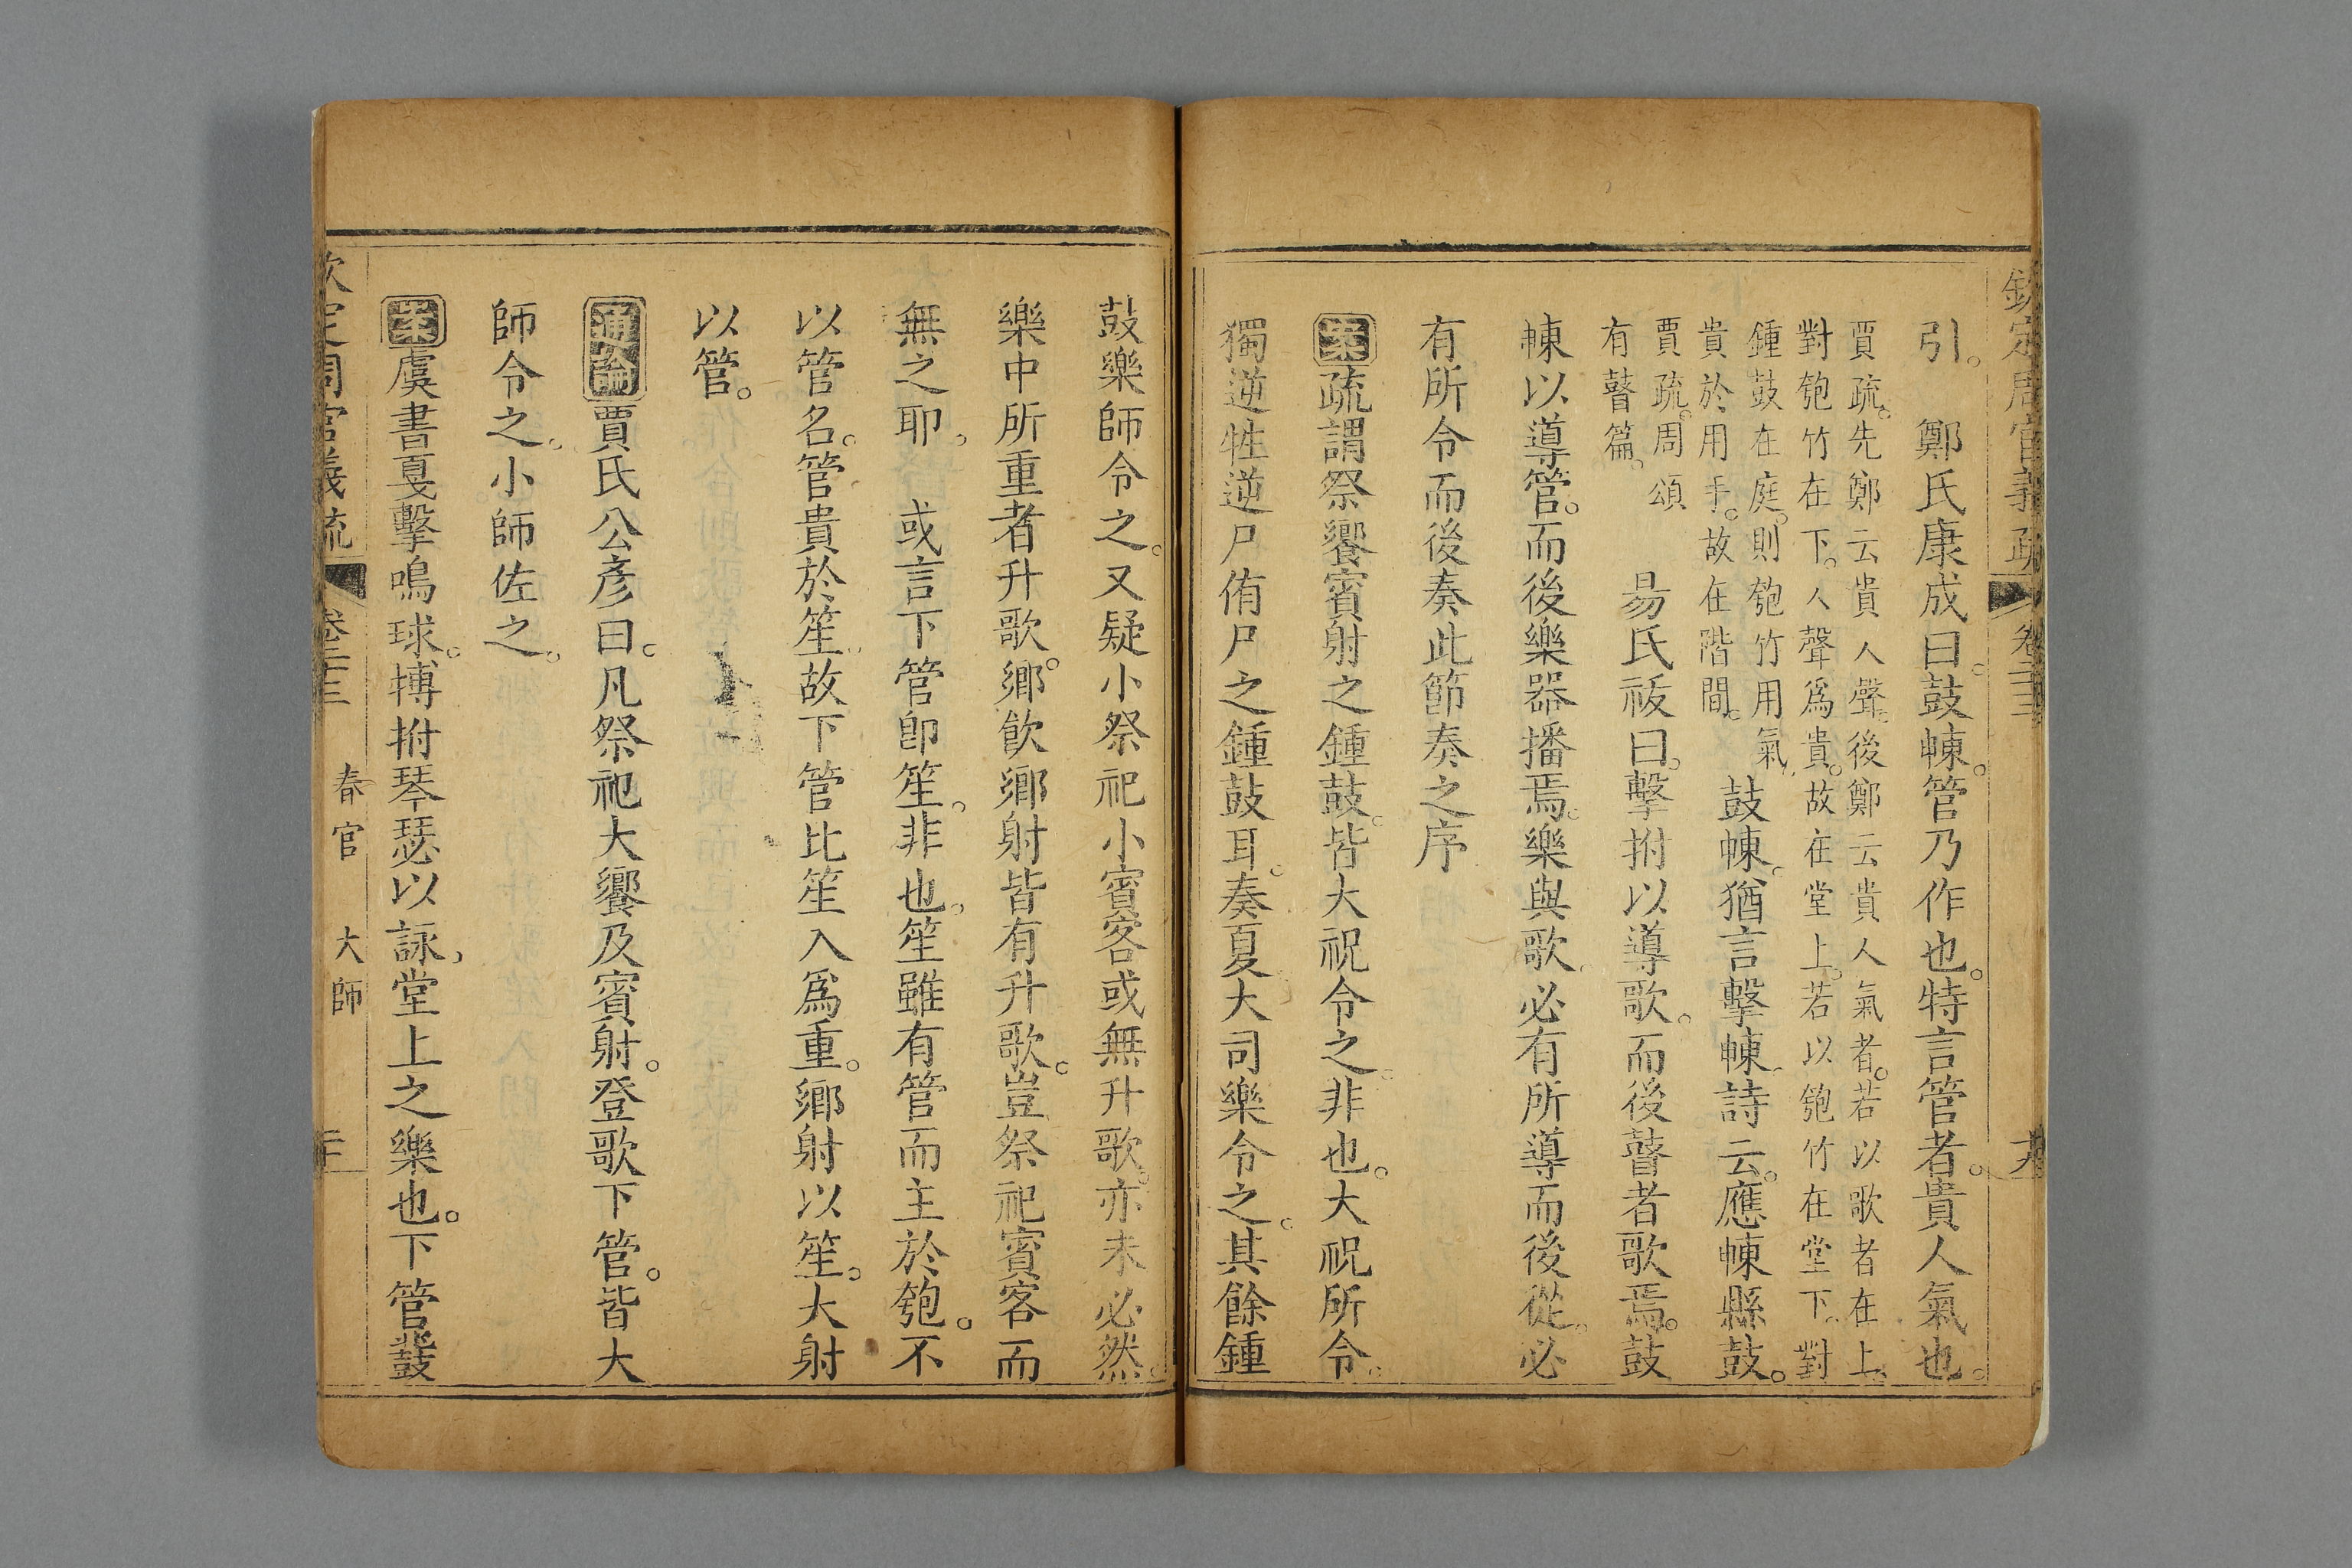 欽定周官義疏 卷二十三
引。 鄭氏康成曰。鼓㯥。管乃作也。特言管者。貴人氣也。
賈疏。先鄭云貴人聲。後鄭云貴人氣者。若以歌者在上。
對匏竹在下。人聲爲貴。故在堂上。若以匏竹在堂下。對
鍾鼓在庭。則匏竹用氣。
貴於用手。故在階間。
鼓㯥。猶言擊㯥。詩云。應㯥縣鼓。
賈疏。周頌
有瞽篇。
易氏祓曰。擊拊以導歌。而後瞽者歌焉。鼓
㯥以導管。而後樂器播焉。樂與歌。必有所導而後從。必
有所令而後奏此節奏之序
案疏謂祭饗賓射之鍾鼓。皆大祝令之。非也。大祝所令。
獨逆牲逆尸侑尸之鍾鼓耳。奏夏大司樂令之。其餘鍾
鼓樂師令之。又疑小祭祀小賓客或無升歌。亦未必然。
樂中所重者升歌。鄉飲鄉射皆有升歌。豈祭祀賓客而
無之耶。 或言下管卽笙。非也。笙雖有管而主於匏。不
以管名。管貴於笙。故下管比笙入爲重。鄉射以笙。大射
以管。
通論賈氏公彥曰。凡祭祀大饗及賓射。登歌下管。皆大
師令之。小師佐之。
案虞書戛擊鳴球。搏拊琴瑟以詠。堂上之樂也。下管鼗
欽定周官義疏 卷二十三 春官 大師 二十